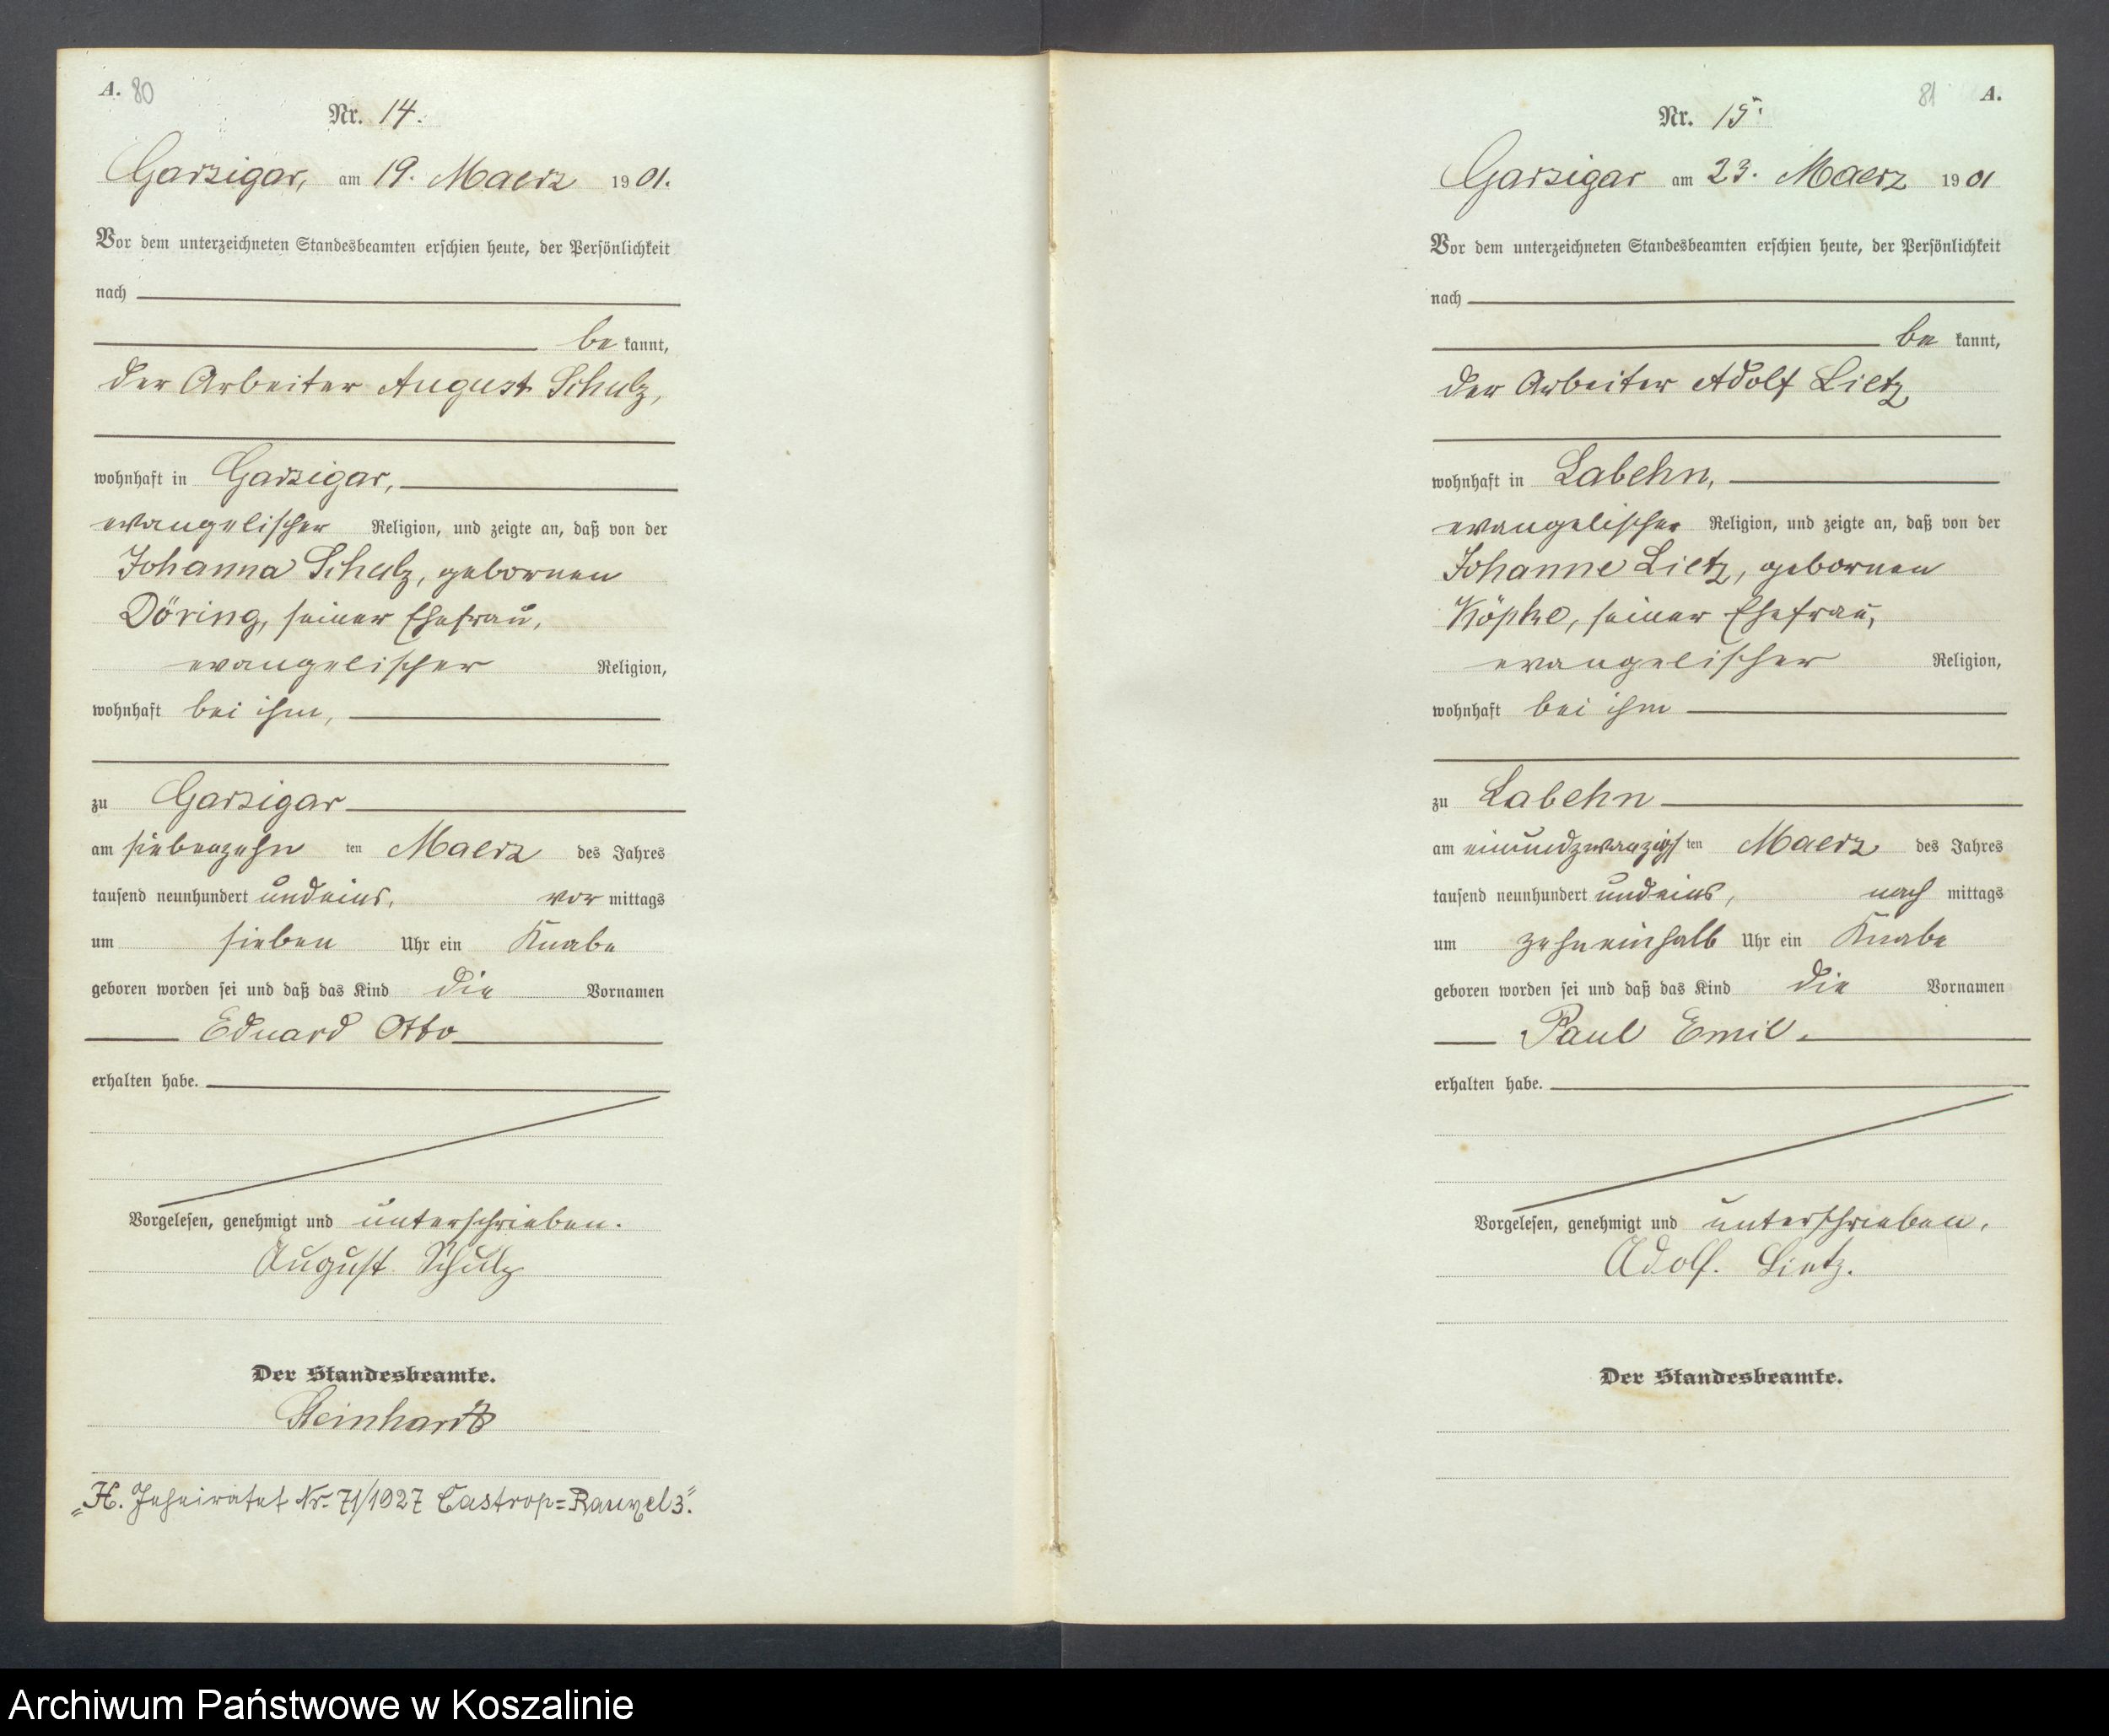 A. 80
Nr. 14.
Garzigar, am 19. Maerz 1901.
Vor dem unterzeichneten Standesbeamten erschien heute, der Persönlichkeit
nach
be kannt,
der Arbeiter August Schulz,
wohnhaft in Garzigar,
evangelischer Religion, und zeigte an, daß von der
Johanna Schulz, gebornen
Döring, seiner Ehefrau,
evangelischer Religion,
wohnhaft bei ihm,
zu Garzigar
am siebenzehn ten Maerz des Jahres
tausend neunhundert undeins, vor mittags
um sieben Uhr ein Knabe
geboren worden sei und daß das Kind die Vornamen
Eduard Otto
erhalten habe.
Vorgelesen, genehmigt und unterschrieben.
August Schulz
Der Standesbeamte.
Steinhardt
„H. Geheiratet Nr. 71/1927 Castrop=Rauxel 3."
81 A.
Nr. 15.
Garzigar am 23. Maerz 1901
Vor dem unterzeichneten Standesbeamten erschien heute, der Persönlichkeit
nach
be kannt,
der Arbeiter Adolf Lietz,
wohnhaft in Labehn,
evangelischer Religion, und zeigte an, daß von der
Johanne Lietz, gebornen
Köpke, seiner Ehefrau,
evangelischer Religion,
wohnhaft bei ihm
zu Labehn
am einundzwanzigs ten Maerz des Jahres
tausend neunhundert undeins, nach mittags
um zehneinhalb Uhr ein Knabe
geboren worden sei und daß das Kind die Vornamen
Paul Emil.
erhalten habe.
Vorgelesen, genehmigt und unterschrieben.
Adolf. Lietz.
Der Standesbeamte.
Archiwum Państwowe w Koszalinie